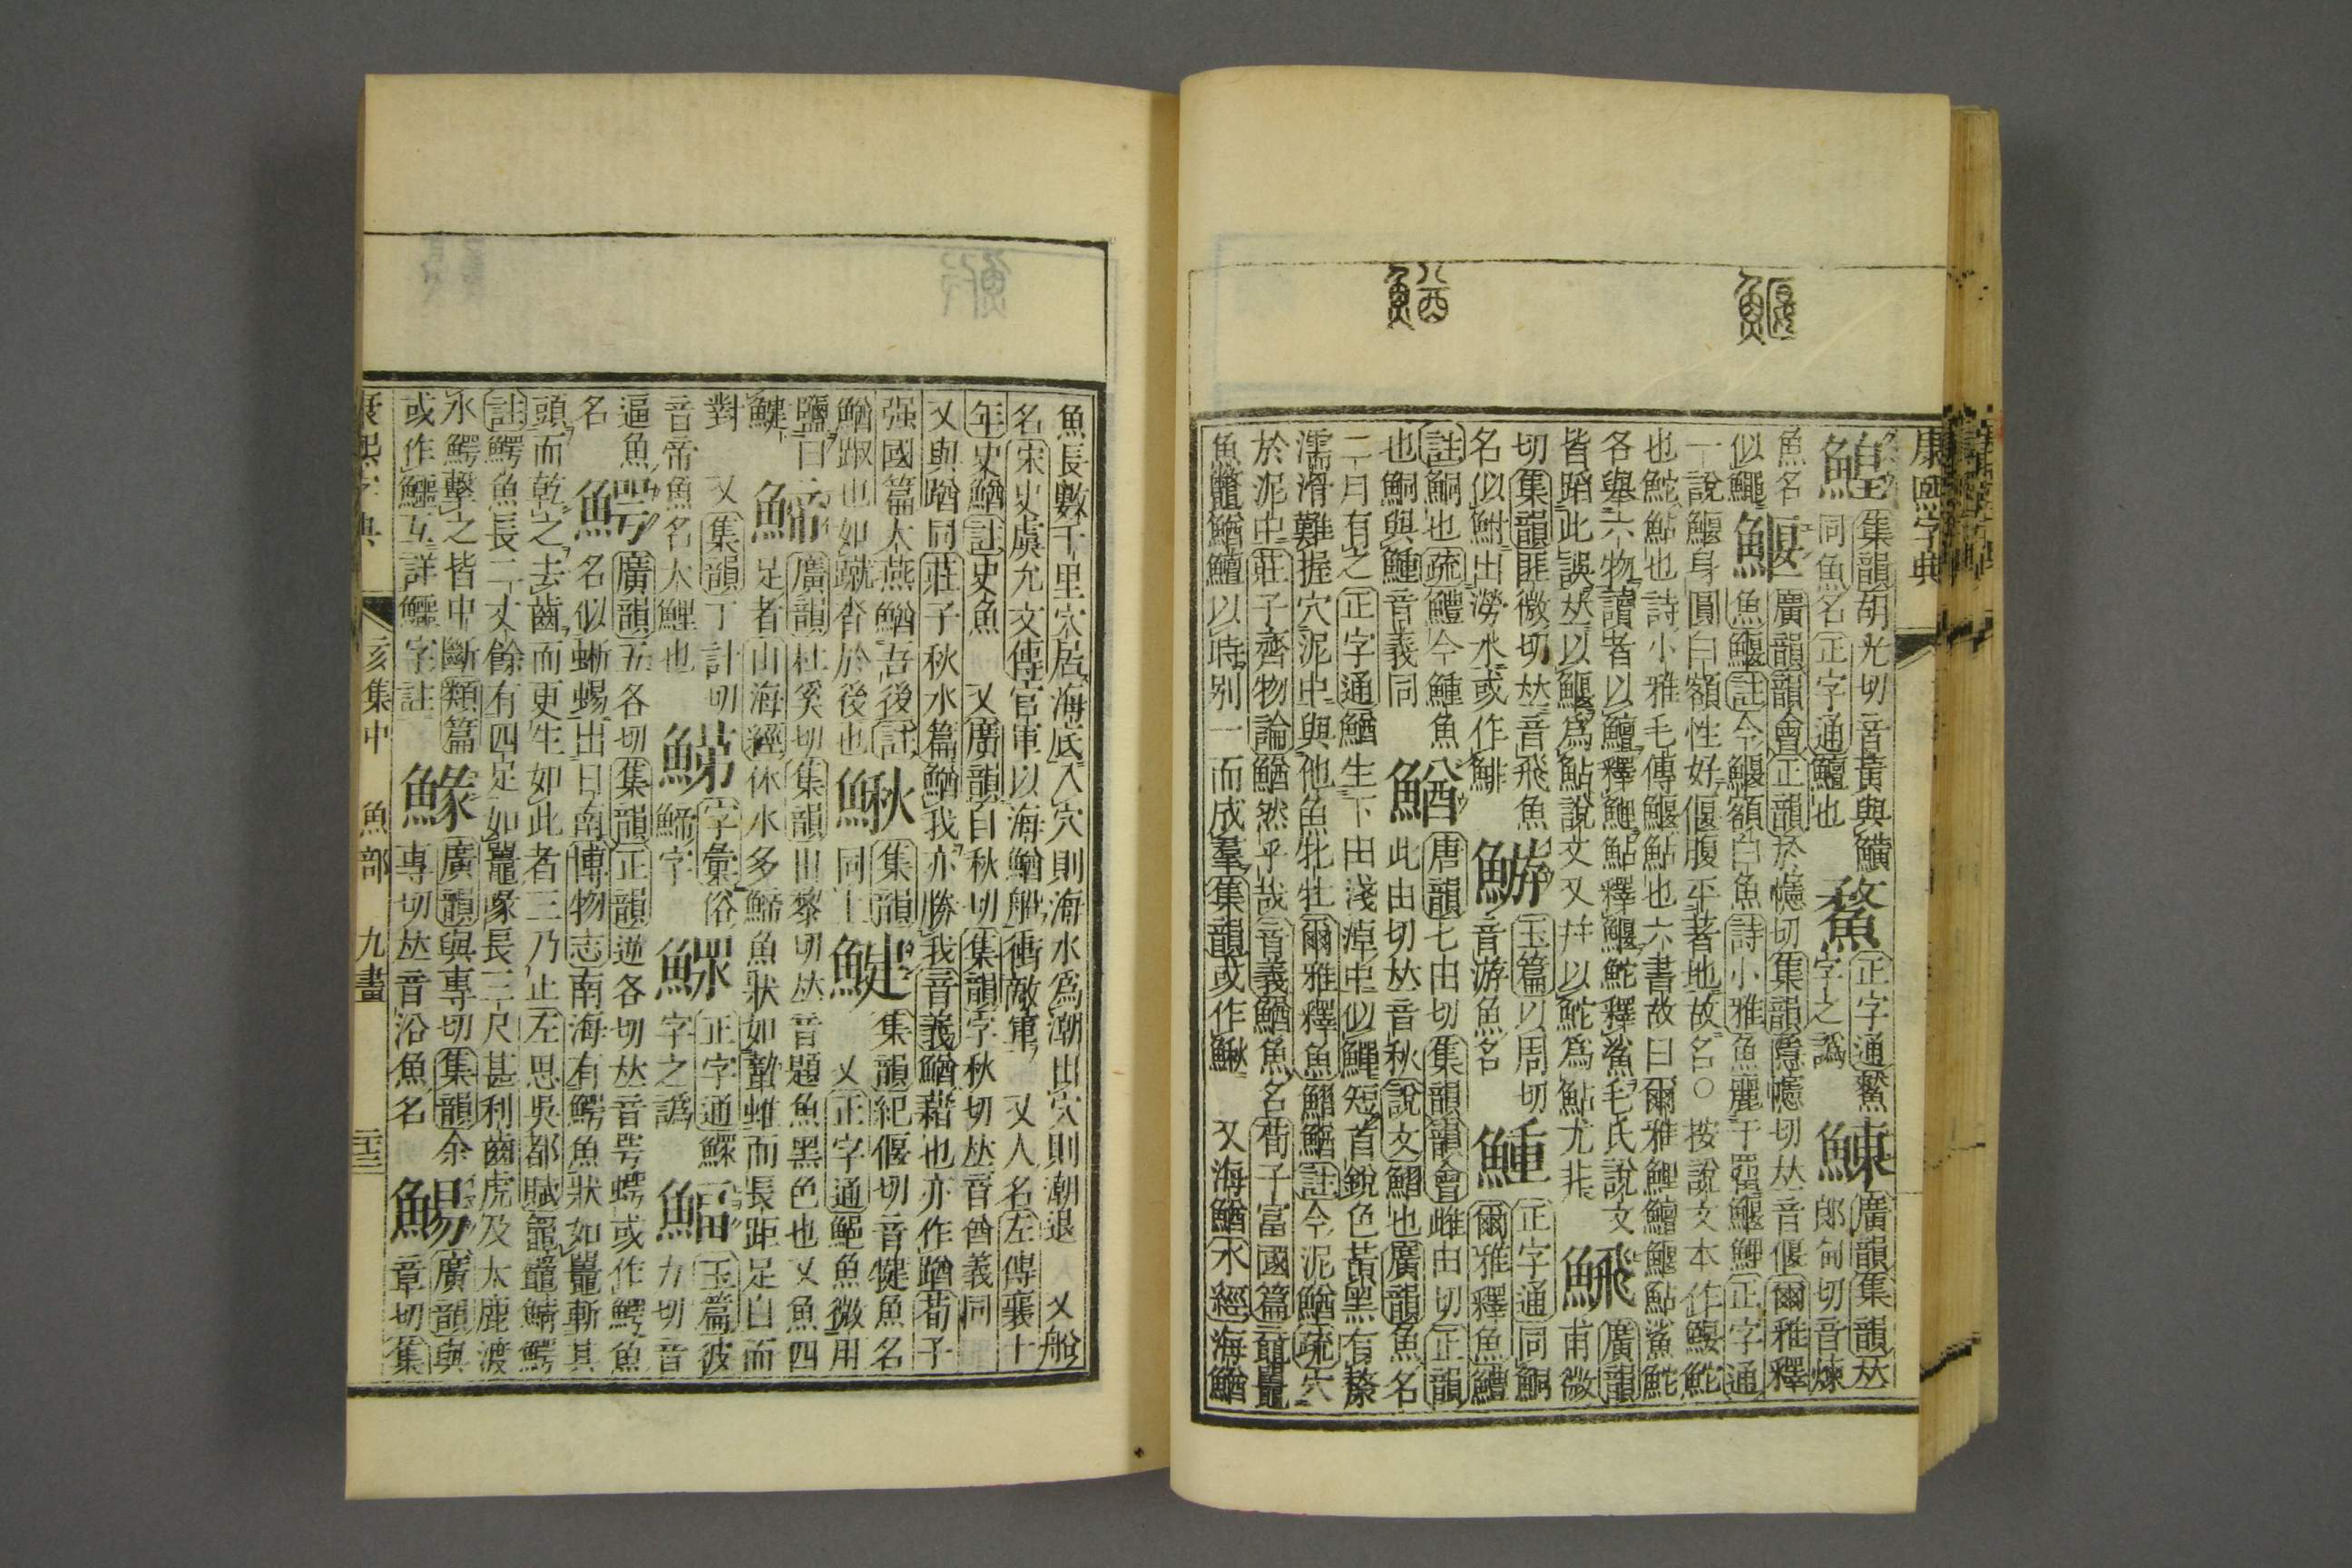 康熙字典
鰉
集韻胡光切音黃與鱑
同魚名正字通鱣也
正字通鰲
字之譌
鰊
廣韻集韻𠀤
郎甸切音煉
魚名
似鱦
鰋
廣韻韻會正韻於幰切集韻隱幰切𠀤音偃爾雅釋
魚鰋註今鰋額白魚詩小雅魚麗于罶鰋鯉正字通
一說鰋身圓白額性好偃腹平著地故名○按說文本作鰋鮀
也鮀鮎也詩小雅毛傳鰋鮎也六書故曰爾雅鯉鱣鰋鮎鯊鮀
各舉六物讀者以鱣釋鯉鮎釋鰋鮀釋鯊毛氏說文
皆蹈此誤𠀤以鰋爲鮎說文又幷以鮀爲鮎尤非
廣韻
甫微
切集韻匪微切𠀤音飛魚
名似鮒出澇水或作鯡
玉篇以周切
音游魚名
正字通同鮦
爾雅釋魚鱧
註鮦也疏鱧今魚
也鮦與音義同
鰌
唐韻七由切集韻韻會雌由切正韻
此由切𠀤音秋說文鰼也廣韻魚名
二月有之正字通鰌生下田淺淖中似鱓短首銳色黃黑有漦
濡滑難握穴泥中與他魚牝牡爾雅釋魚鰼鰌註今泥鰌疏穴
於泥中莊子齊物論鰌然乎哉音義鰌魚名荀子富國篇黿鼉
魚鼈鰌鱣以時別一而成羣集韻或作鰍 又海鰌水經海鰌
魚長數千里穴居海底入穴則海水爲潮出穴則潮退 又船
名宋史虞允文傳官軍以海鰌船衝敵軍 又人名左傳襄十
年史鰌註史魚 又廣韻自秋切集韻字秋切𠀤音酋義同
又與䠓同莊子秋水篇鰌我亦勝我音義鰌藉也亦作䠓荀子
强國篇大燕鰌吾後註
鰌踧也如蹴沓於後也
鰍
集韻
同上
鰎
集韻紀偃切音犍魚名
又正字通鮑魚微用
鹽曰
鰎
䱱
廣韻杜奚切集韻田黎切𠀤音題魚黑色也又魚四
足者山海經休水多䱱魚狀如蟄蜼而長距足白而
對 又集韻丁計切
音帝魚名大鯉也
字彙俗
䱱字
正字通鰥
字之譌
鰏
玉篇彼
力切音
逼魚
名
鰐
廣韻五各切集韻正韻逆各切𠀤音咢或作鰐魚
名似蜥蜴出日南博物志南海有鰐魚狀如鼉斬其
頭而乾之去齒而更生如此者三乃止左思吳都賦鼅鼊鯖鰐
註鰐魚長二丈餘有四足如鼉喙長三尺甚利齒虎及大鹿渡
水鰐擊之皆中斷類篇
或作鱷互詳鱷字註
鱼彖
廣韻與專切集韻余
專切𠀤音沿魚名
鰑
廣韻與
章切集
康熙字典
亥集中 魚部 九畫 二十三